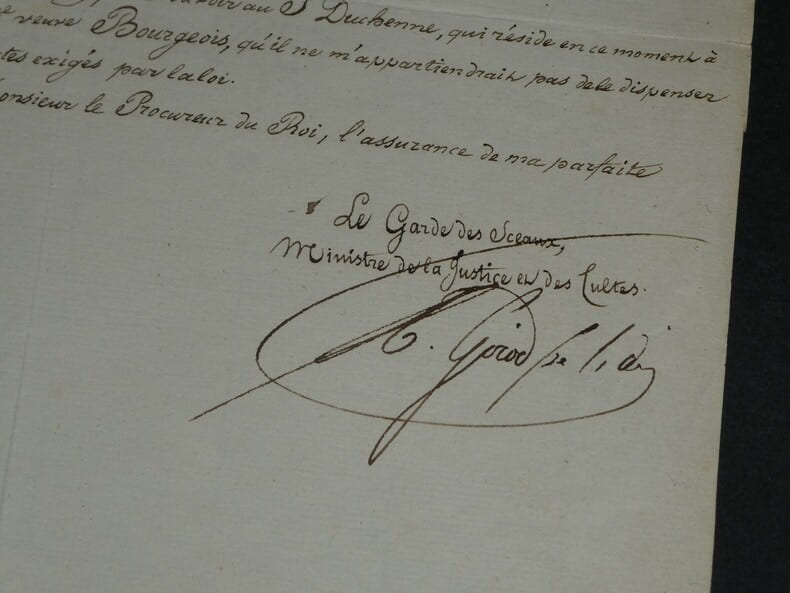 au S Duchenne, qui réside en ce moment à
veuve Bourgeois, qu'il ne m'appartiendrait pas de le dispenser
exigés par la loi.
onsieur le Procureur du Roi, l'assurance de ma parfaite
Le Garde des Sceaux,
Ministre de la Justice et des Cultes.
Girod de l'ain